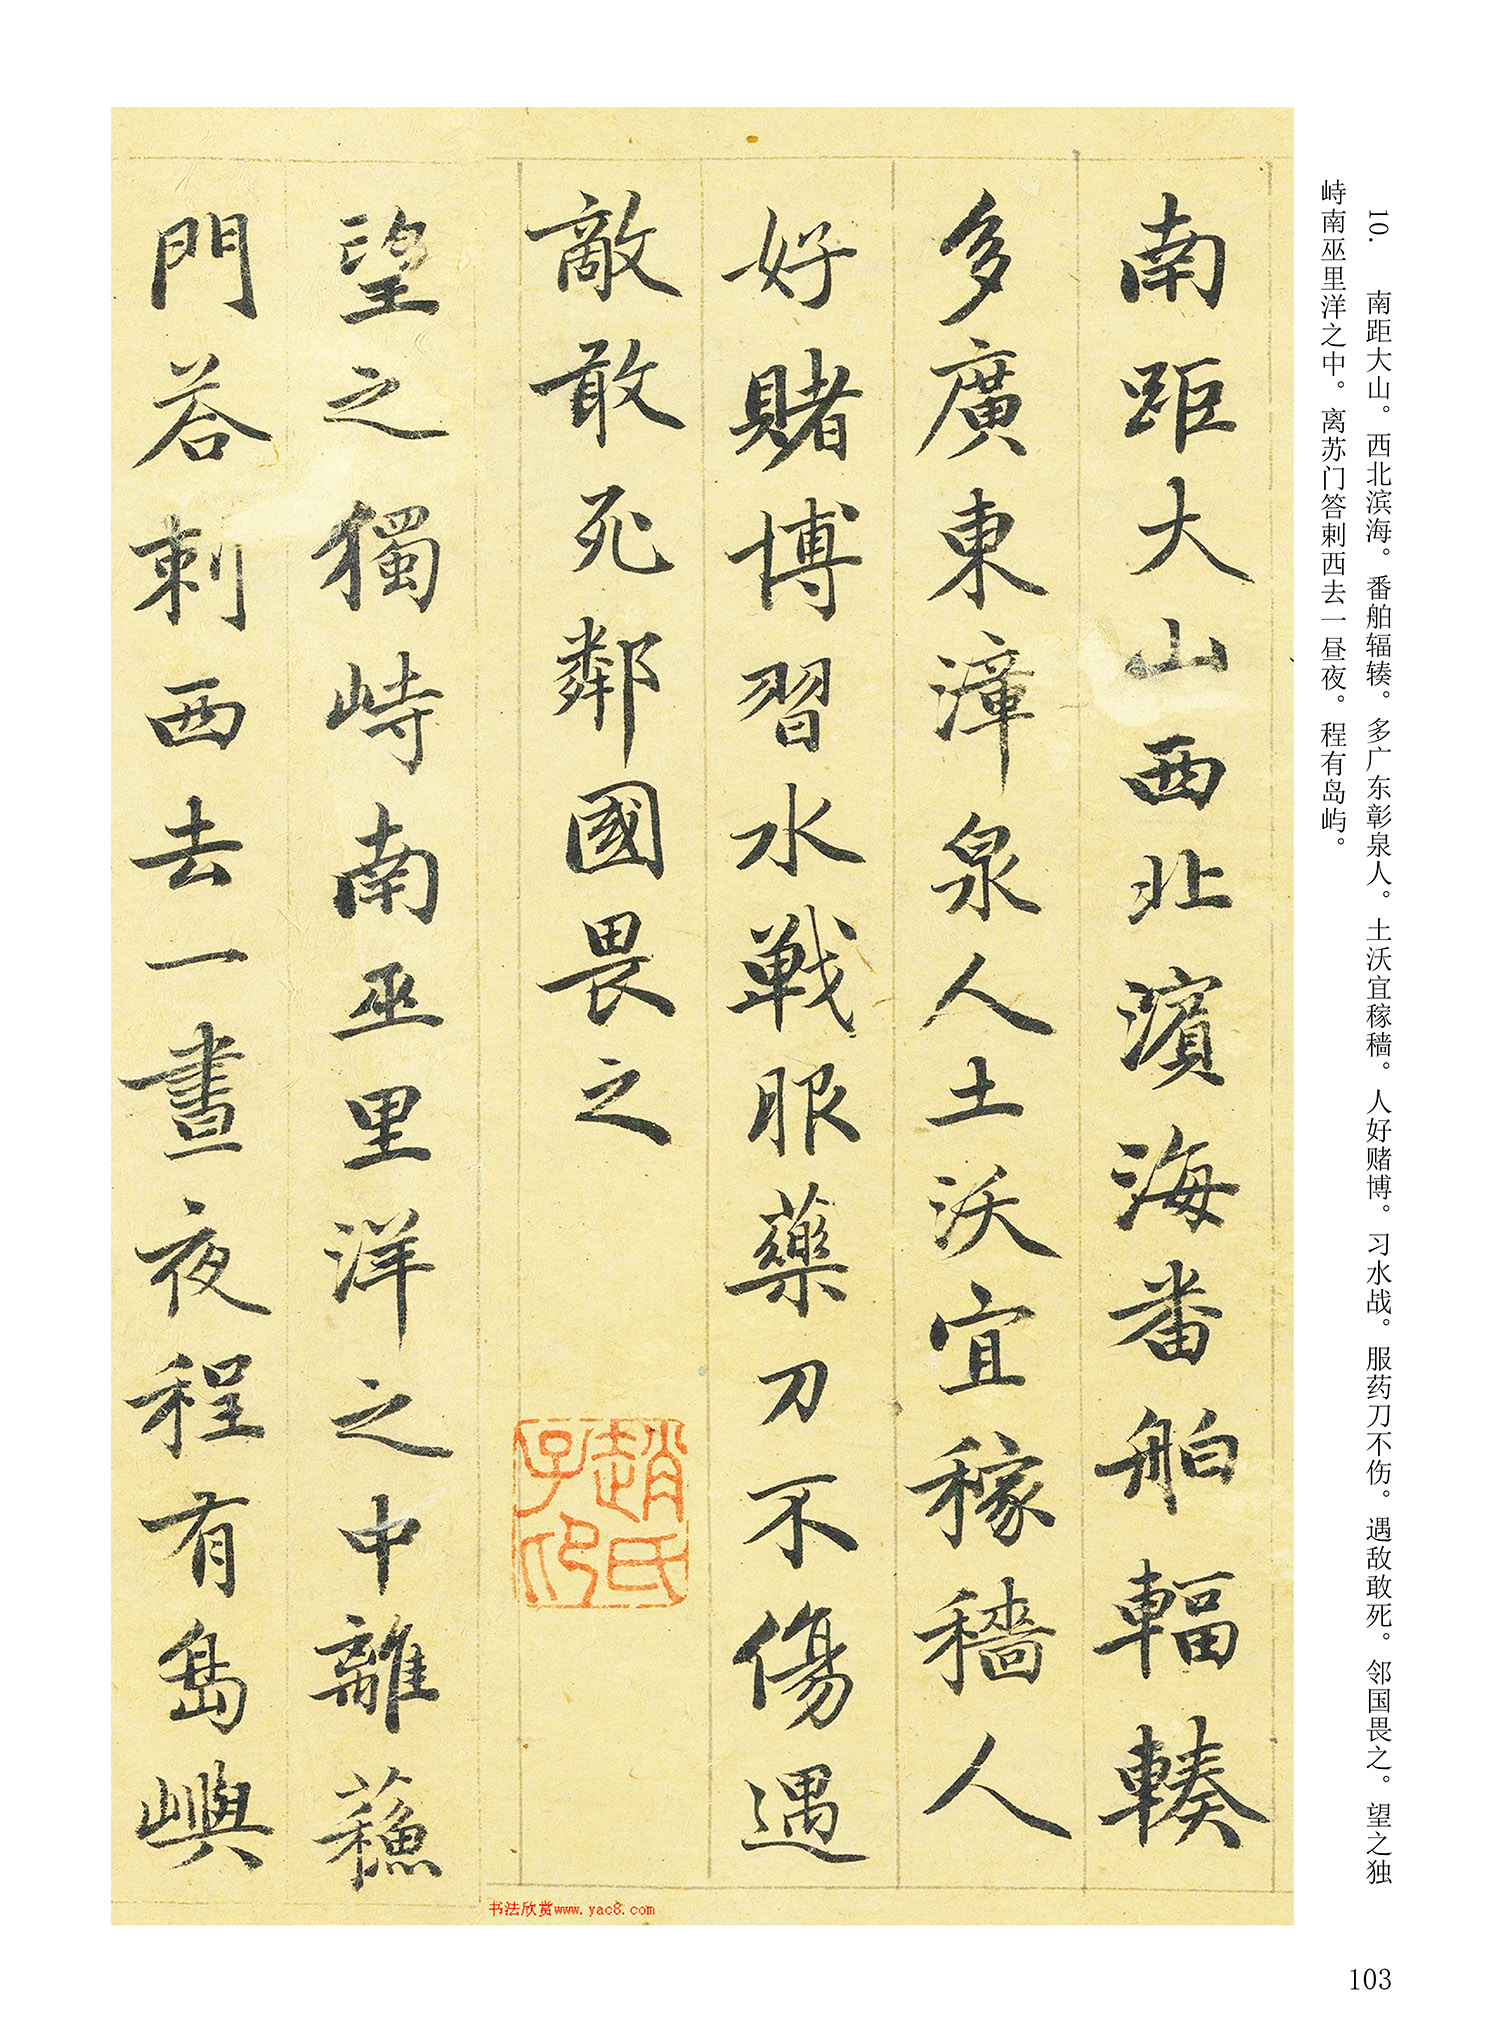 10. 南距大山。西北滨海。番舶辐辏。多广东彰泉人。土沃宜稼穑。人好赌博。习水战。服药刀不伤。遇敌敢死。邻国畏之。望之独
峙南巫里洋之中。离苏门答剌西去一昼夜。程有岛屿。
南距大山西北濱海番舶輻輳
多廣東漳泉人土沃宜稼穡人
好賭博習水戰服藥刀不傷遇
敵敢死鄰國畏之
趙氏
子印
望之獨峙南巫里洋之中離蘓
門荅剌西去一晝夜程有島嶼
书法欣赏www.yac8.com
103